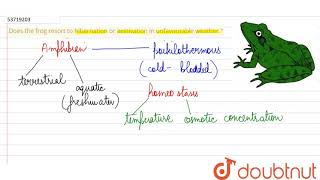 53719203
Does the frog resort to hibernation or aestivation in unfavourable weather.?
Amphibian
poikilothermous
(cold-blooded)
terrestrial
aquatic
(freshwater)
homeostasis
temperature
osmotic concentration
doubtnut